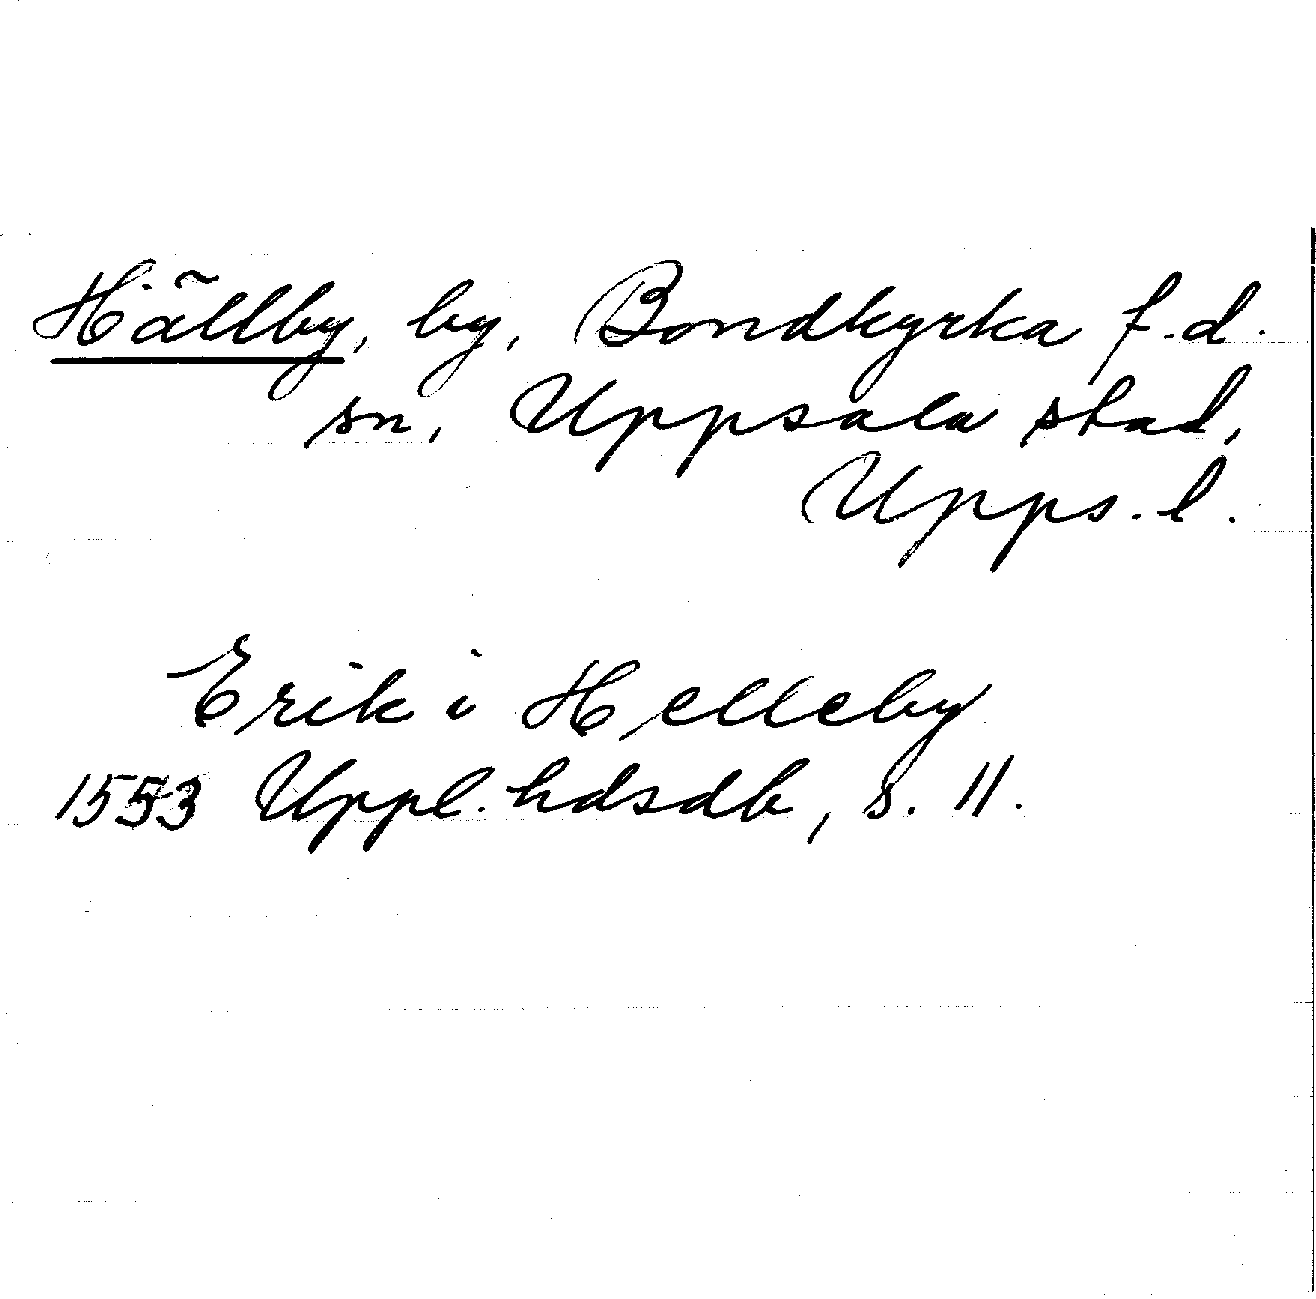 Hällby, by, Bondkyrka f.d.
sn, Uppsala stad,
Upps. l.
Erik i Helleby
1553 Uppl. hdsdb, s. 11.